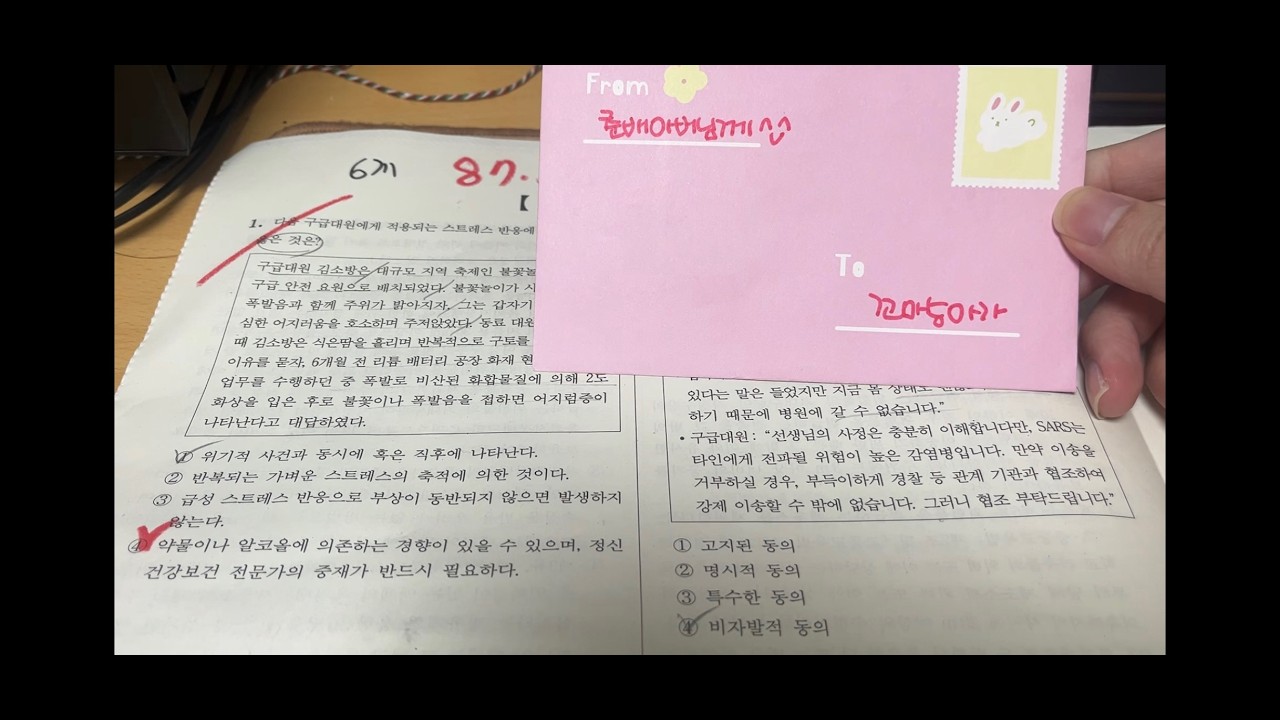 From
춘배아버님께^^
To
꼬마농아가
6기 87.
【
1. 다음 구급대원에게 적용되는 스트레스 반응에
옳은 것은?
구급대원 김소방은 대규모 지역 축제인 불꽃놀
구급 안전 요원으로 배치되었다. 불꽃놀이가 시
폭발음과 함께 주위가 밝아지자, 그는 갑자기
심한 어지러움을 호소하며 주저앉았다. 동료 대원
때 김소방은 식은땀을 흘리며 반복적으로 구토를
이유를 묻자, 6개월 전 리튬 배터리 공장 화재 현
업무를 수행하던 중 폭발로 비산된 화합물질에 의해 2도
화상을 입은 후로 불꽃이나 폭발음을 접하면 어지럼증이
나타난다고 대답하였다.
① 위기적 사건과 동시에 혹은 직후에 나타난다.
② 반복되는 가벼운 스트레스의 축적에 의한 것이다.
③ 급성 스트레스 반응으로 부상이 동반되지 않으면 발생하지
않는다.
④ 약물이나 알코올에 의존하는 경향이 있을 수 있으며, 정신
건강보건 전문가의 중재가 반드시 필요하다.
있다는 말은 들었지만 지금 몸 상태도
하기 때문에 병원에 갈 수 없습니다."
• 구급대원 : "선생님의 사정은 충분히 이해합니다만, SARS는
타인에게 전파될 위험이 높은 감염병입니다. 만약 이송을
거부하실 경우, 부득이하게 경찰 등 관계 기관과 협조하여
강제 이송할 수 밖에 없습니다. 그러니 협조 부탁드립니다."
① 고지된 동의
② 명시적 동의
③ 특수한 동의
④ 비자발적 동의